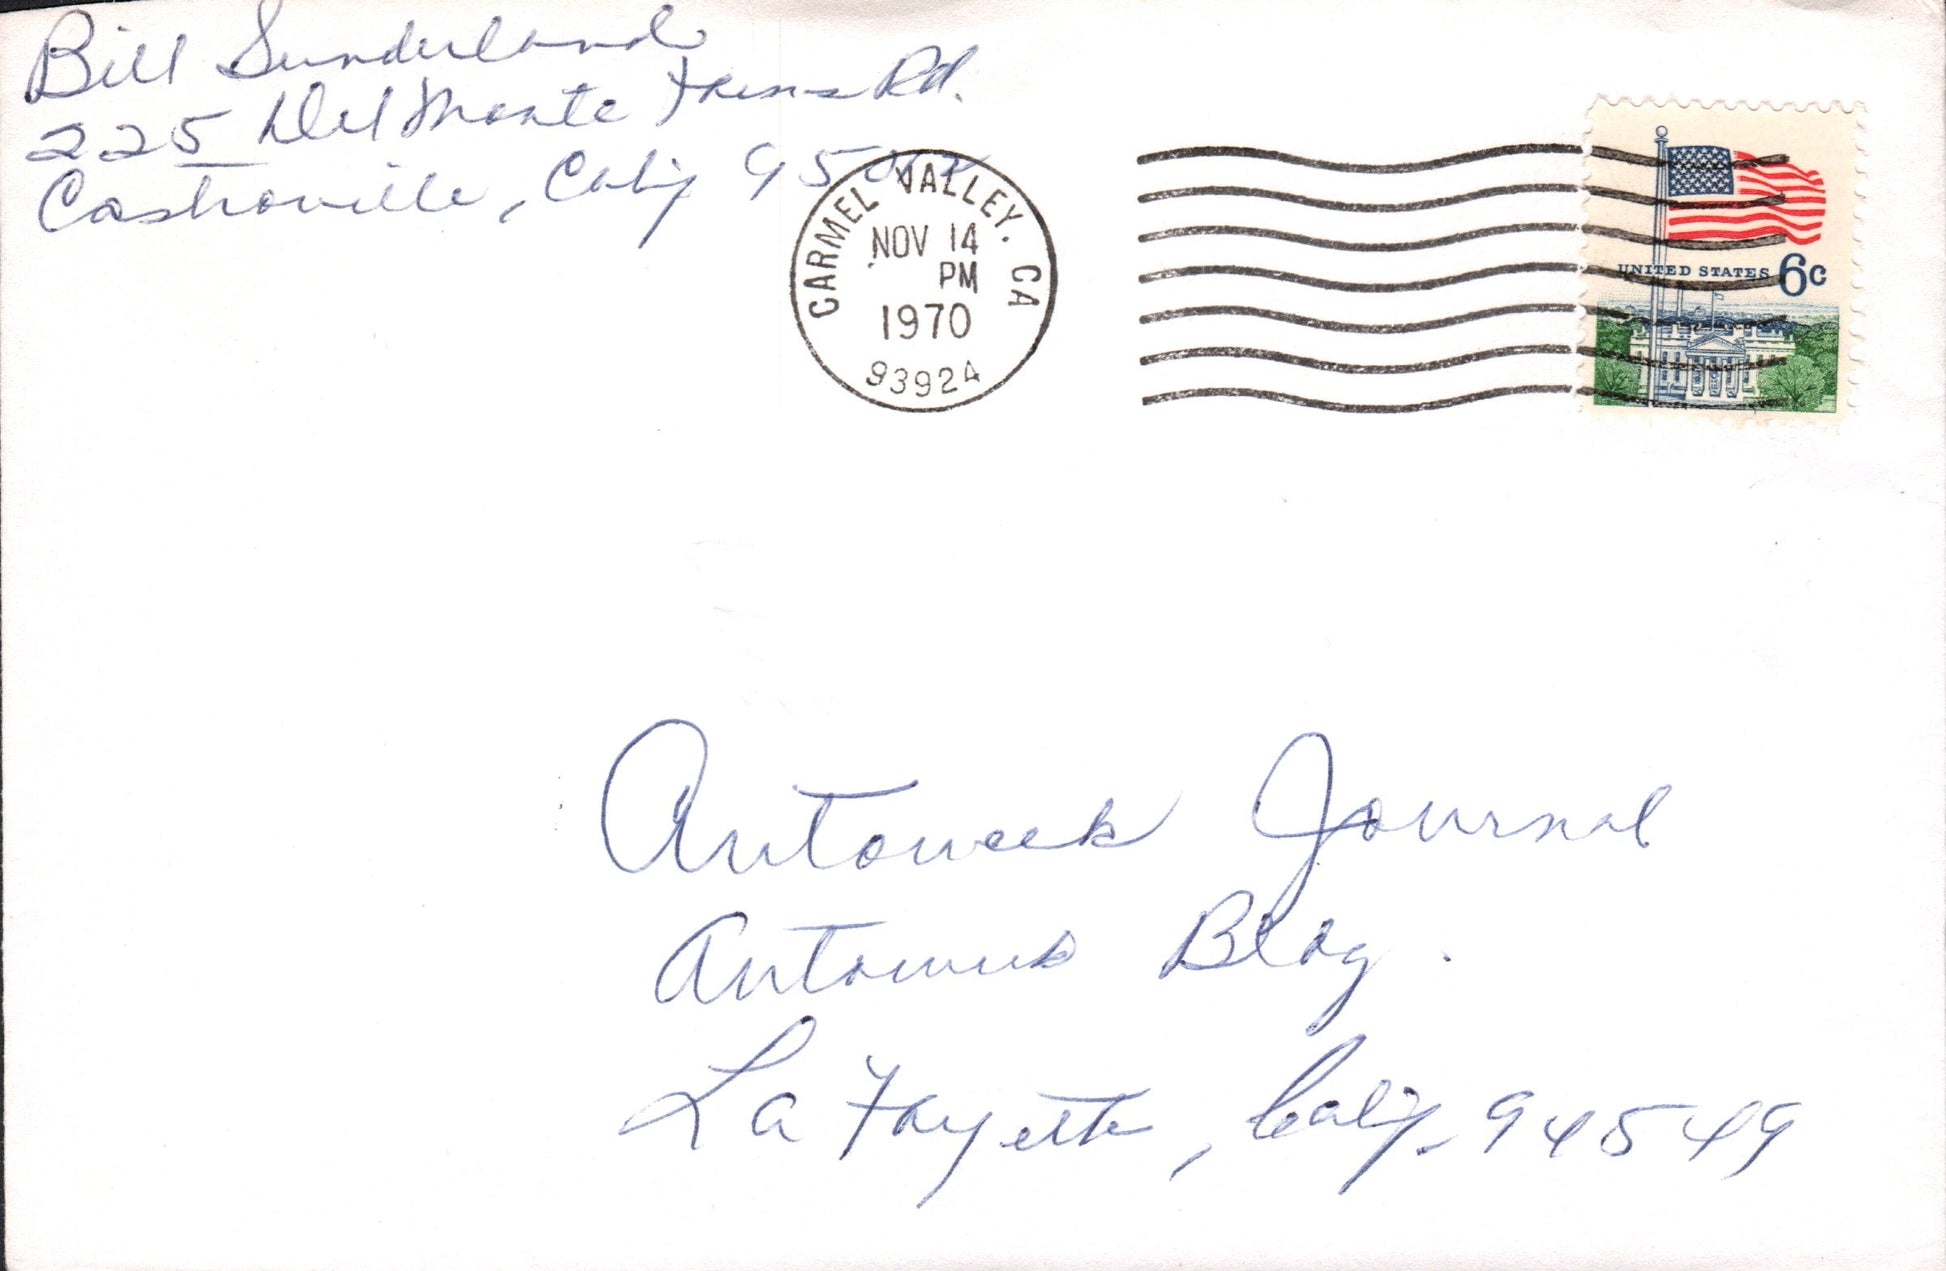 Bill Sunderland
225 Del Monte Farms Rd.
Castroville, Calif 950
CARMEL VALLEY, CA
NOV 14
PM
1970
93924
UNITED STATES 6c
Autoweek Journal
Autoweek Bldg.
La Fayette, Calif. 94549